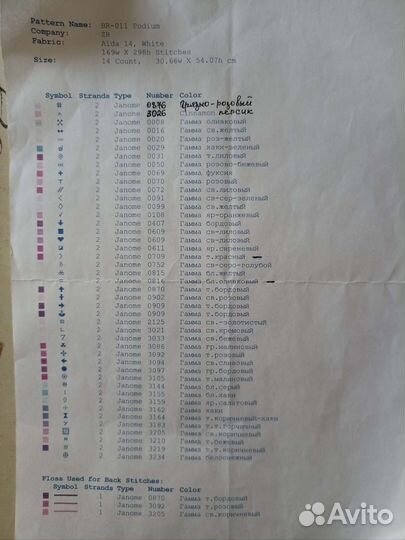 Pattern Name: BR-011 Podium
Company: ZB
Fabric: Aida 14, White
169w X 298h Stitches
Size: 14 Count, 30.66w X 54.07h cm
Symbol Strands Type Number Color
2 Janome 0876 Грязно-розовый
2 Janome 3026 Cinnamon персик
2 Janome 0008 Гамма оливковый
2 Janome 0016 Гамма св.желтый
2 Janome 0020 Гамма роз-желтый
2 Janome 0029 Гамма хаки-зеленый
2 Janome 0031 Гамма т.лиловый
2 Janome 0050 Гамма розово-бежевый
2 Janome 0069 Гамма фуксия
2 Janome 0070 Гамма розовый
2 Janome 0072 Гамма св.лиловый
2 Janome 0091 Гамма св-сер-зеленый
2 Janome 0099 Гамма св.желтый
2 Janome 0108 Гамма яр-оранжевый
2 Janome 0407 Гамма бордовый
2 Janome 0608 Гамма св-лиловый
2 Janome 0609 Гамма св-лиловый
2 Janome 0611 Гамма яр.сиреневый
2 Janome 0709 Гамма т.красный
2 Janome 0752 Гамма св-серо-голубой
2 Janome 0815 Гамма бл.желтый
2 Janome 0816 Гамма бл.оливковый
2 Janome 0870 Гамма т.бордовый
2 Janome 0902 Гамма св.розовый
2 Janome 0909 Гамма т.бордовый
2 Janome 0909 Гамма т.бордовый
2 Janome 2125 Гамма св.-золотистый
2 Janome 3021 Гамма св.кремовый
2 Janome 3033 Гамма св.бежевый
2 Janome 3086 Гамма гр.малиновый
2 Janome 3092 Гамма т.розовый
2 Janome 3094 Гамма св.сливовый
2 Janome 3097 Гамма гр.бордовый
2 Janome 3105 Гамма т.малиновый
2 Janome 3144 Гамма бл.серый
2 Janome 3155 Гамма бл.хаки
2 Janome 3159 Гамма яр.салатовый
2 Janome 3162 Гамма хаки
2 Janome 3164 Гамма т.коричневый-хаки
2 Janome 3183 Гамма т.т.горчичный
2 Janome 3205 Гамма св.коричневый
2 Janome 3210 Гамма т.бежевый
2 Janome 3219 Гамма т.т.коричневый
2 Janome 3234 Гамма белоснежный
Floss Used for Back Stitches:
Symbol Strands Type Number Color
1 Janome 0870 Гамма т.бордовый
1 Janome 3092 Гамма т.розовый
1 Janome 3205 Гамма св.коричневый
Avito